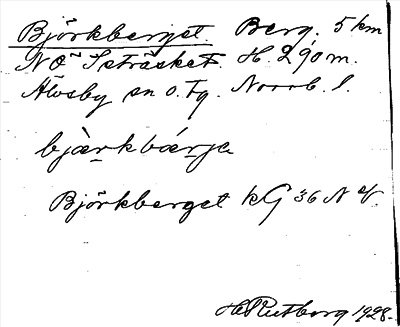 Björkberget. Berg. 5 km
NO Isträsket. H. 290 m.
Älvsby sn o. tg. Norrb. l.
bjàrkbárja
Björkberget kG 36 N
H. Rutberg 1928.